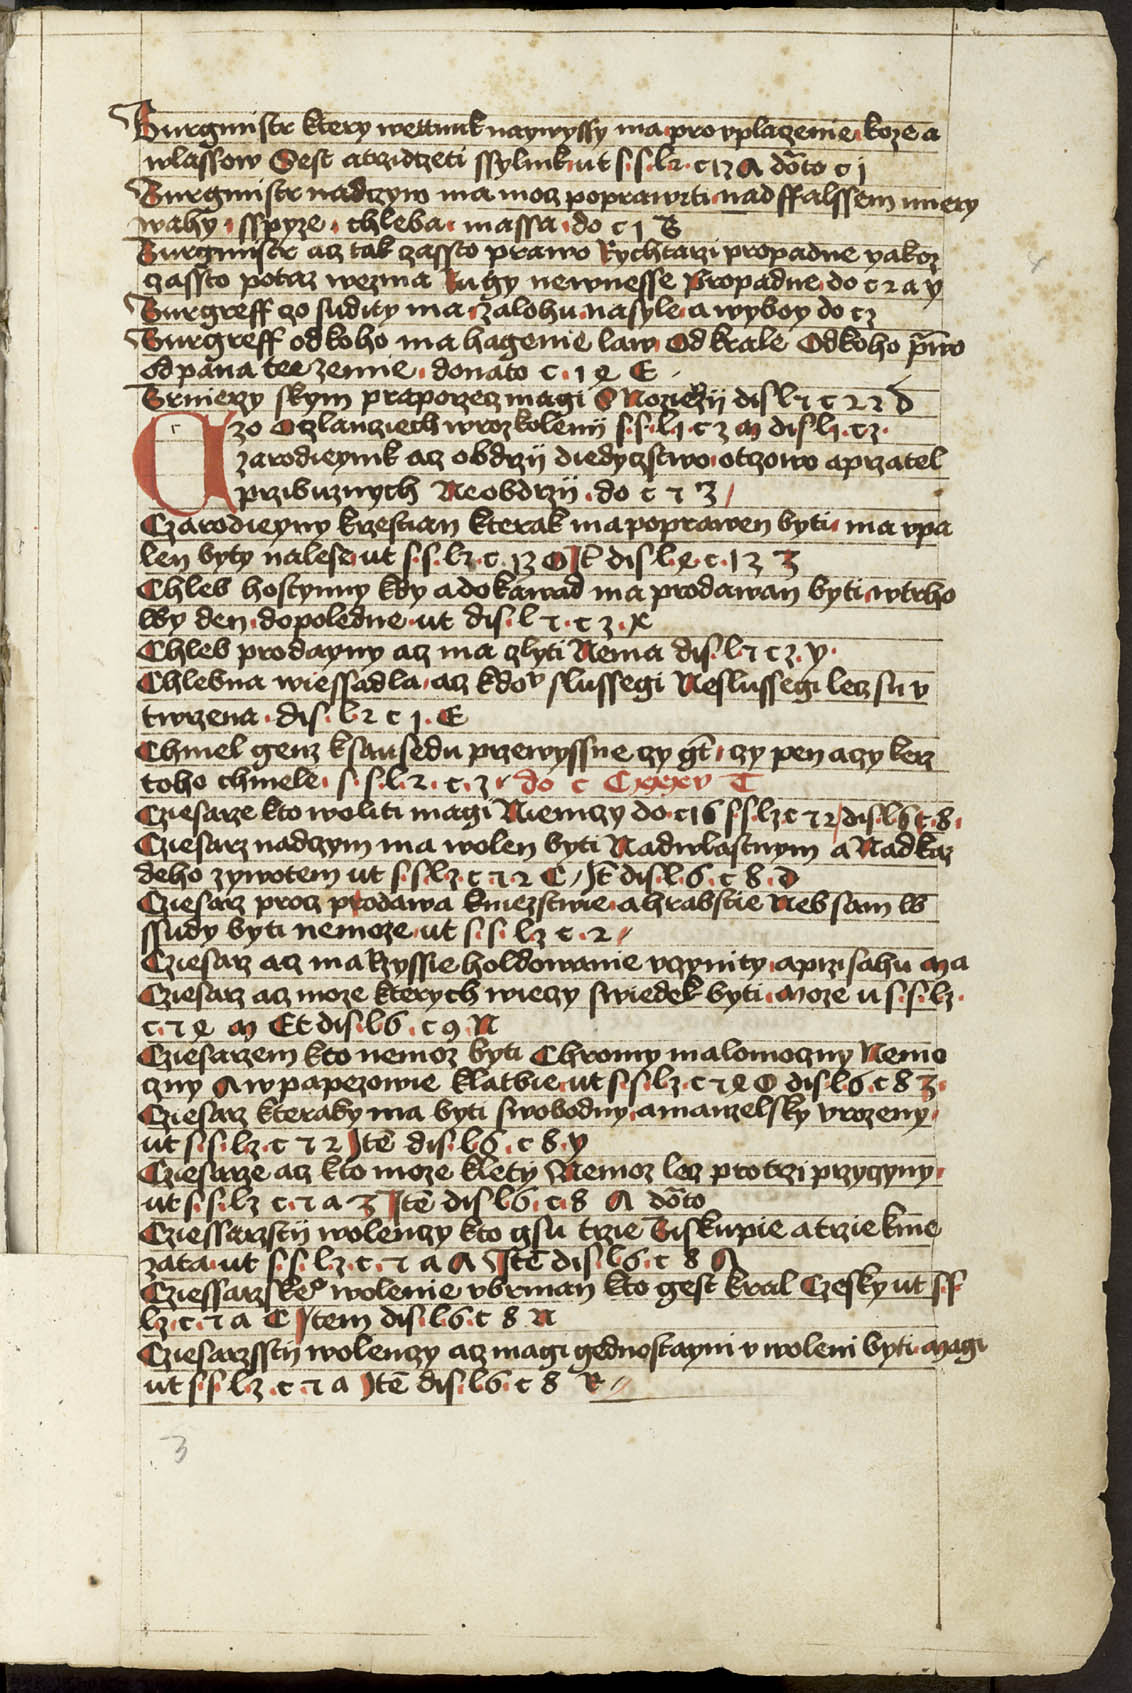 Burgmistr ktery wettnik naywyssy ma pro vplaczenie koze a
wlassow Sest a trzidczeti ssylink ut s. s. l2. c 13 A do͠to c j
Burgmistr nad czym ma mocz poprawiti nad ffalssem miery
wahy . sspyze . chleba . massa . do c j B
Burgmistr acz tak czassto prawo Rychtarzi propadne yakoz
czassto potaz wezma Lu gy newnesse Propadne do c 2 a y
Burgreff czo sudity ma zalohu nasyle a wyboy do c z
Burgreff od koho ma hagenie law Od krale Od koho p͠wo
od pana tee zemie . donato c . j 2 E
Brniery skym praporzecz magi S dis l 7 c 2 2 d
czo O czlancziech w rozkolenij s. s. l j . c 3 m dis l j . c z .
Czarodieynik acz obdrzij diedyczstwo otczowo a przatel
przibuznych Neobdrzij . do c 7 3
Czarodieyny krzestian kterak ma poprawen byti ma vpa
len byty nalese ut s. s. l z . c . 13 O It dis l . 2 . c . 13 3
Chleb hostynny kdy a dokawad ma prodawan byti w trho
wy den dopoledne ut dis. l 7 . c 3 . x
Chleb prodayny acz ma zlyti Nema dis. l 7 c 3 . y .
Chlebna wiessadla acz kdo slussegi Neslussegi lecz su v
twrzena . dis . l 2 c j . E
Chmel genz k sausedu przewyssne czy g͠t . czy pen a czy lecz
toho chmele . s. s. l. 2 . c . 3 . do c Cxxxv T
Cziesarze kto woliti magi Niemczy do c 16 s s l z c 7 2 dis l 6 c . 8 .
Cziesarz nad czym ma wolen byti Nad wlastnym a Nad kaz
deho zywotem ut s s l z . c 7 2 C It͠ dis. l 6 . c 8 . D
Cziesarz procz prodawa kniezstwie a hrabstie Neb sam w
ssudy byti nemoze ut s. s. l z c . 2
Cziesarz acz ma krzyssie holdowanie vczynity a przisahu Ma
Cziesarz acz moze kterych wieczy swiedek byti Moze u s. s. l z .
c . 7 2 m Et dis. l 6 . c 9 . N
Cziesarzem kto nemoz byti Chromy malomoczny Nemo
czny A w papezowie klatbie ut s. s. l z . c 7 2 O dis. l 6 c 8 3 .
Cziesarz kteraky ma byti swobodny a manzelsky vrozeny
ut s. s. l z . c 7 2 Ite͠ dis. l 6 . c 8 . y
Cziesarze acz kto moze klety Nemoz lecz pro trzi przyczyny
ut s. s. l z c . 7 a 3 Ite͠ dis l 6 . c . 8 A do͠to
Cziessarzstij wolenczy kto gsu trzie Biskupie a trzie knie
zata ut s. s. l. z . c . 7 a A Ite͠ dis. l 6 . c 8 A
Cziessarzskeo wolenie vbrman kto gest kral Czesky ut s s
l z . c . 7 a C Item dis. l 6 . c 8 N
Cziesarzsstij wolenczy acz magi gednostayni v woleni byti Magi
ut s. s. l z . c . 7 a Ite͠ dis. l 6 . c 8 R
3